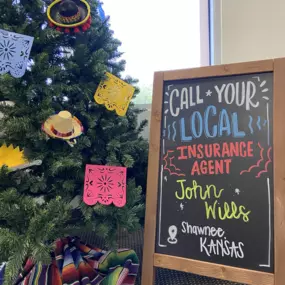 CALL • YOUR
LOCAL
INSURANCE
AGENT
John
Wills
Shawnee
KANSAS